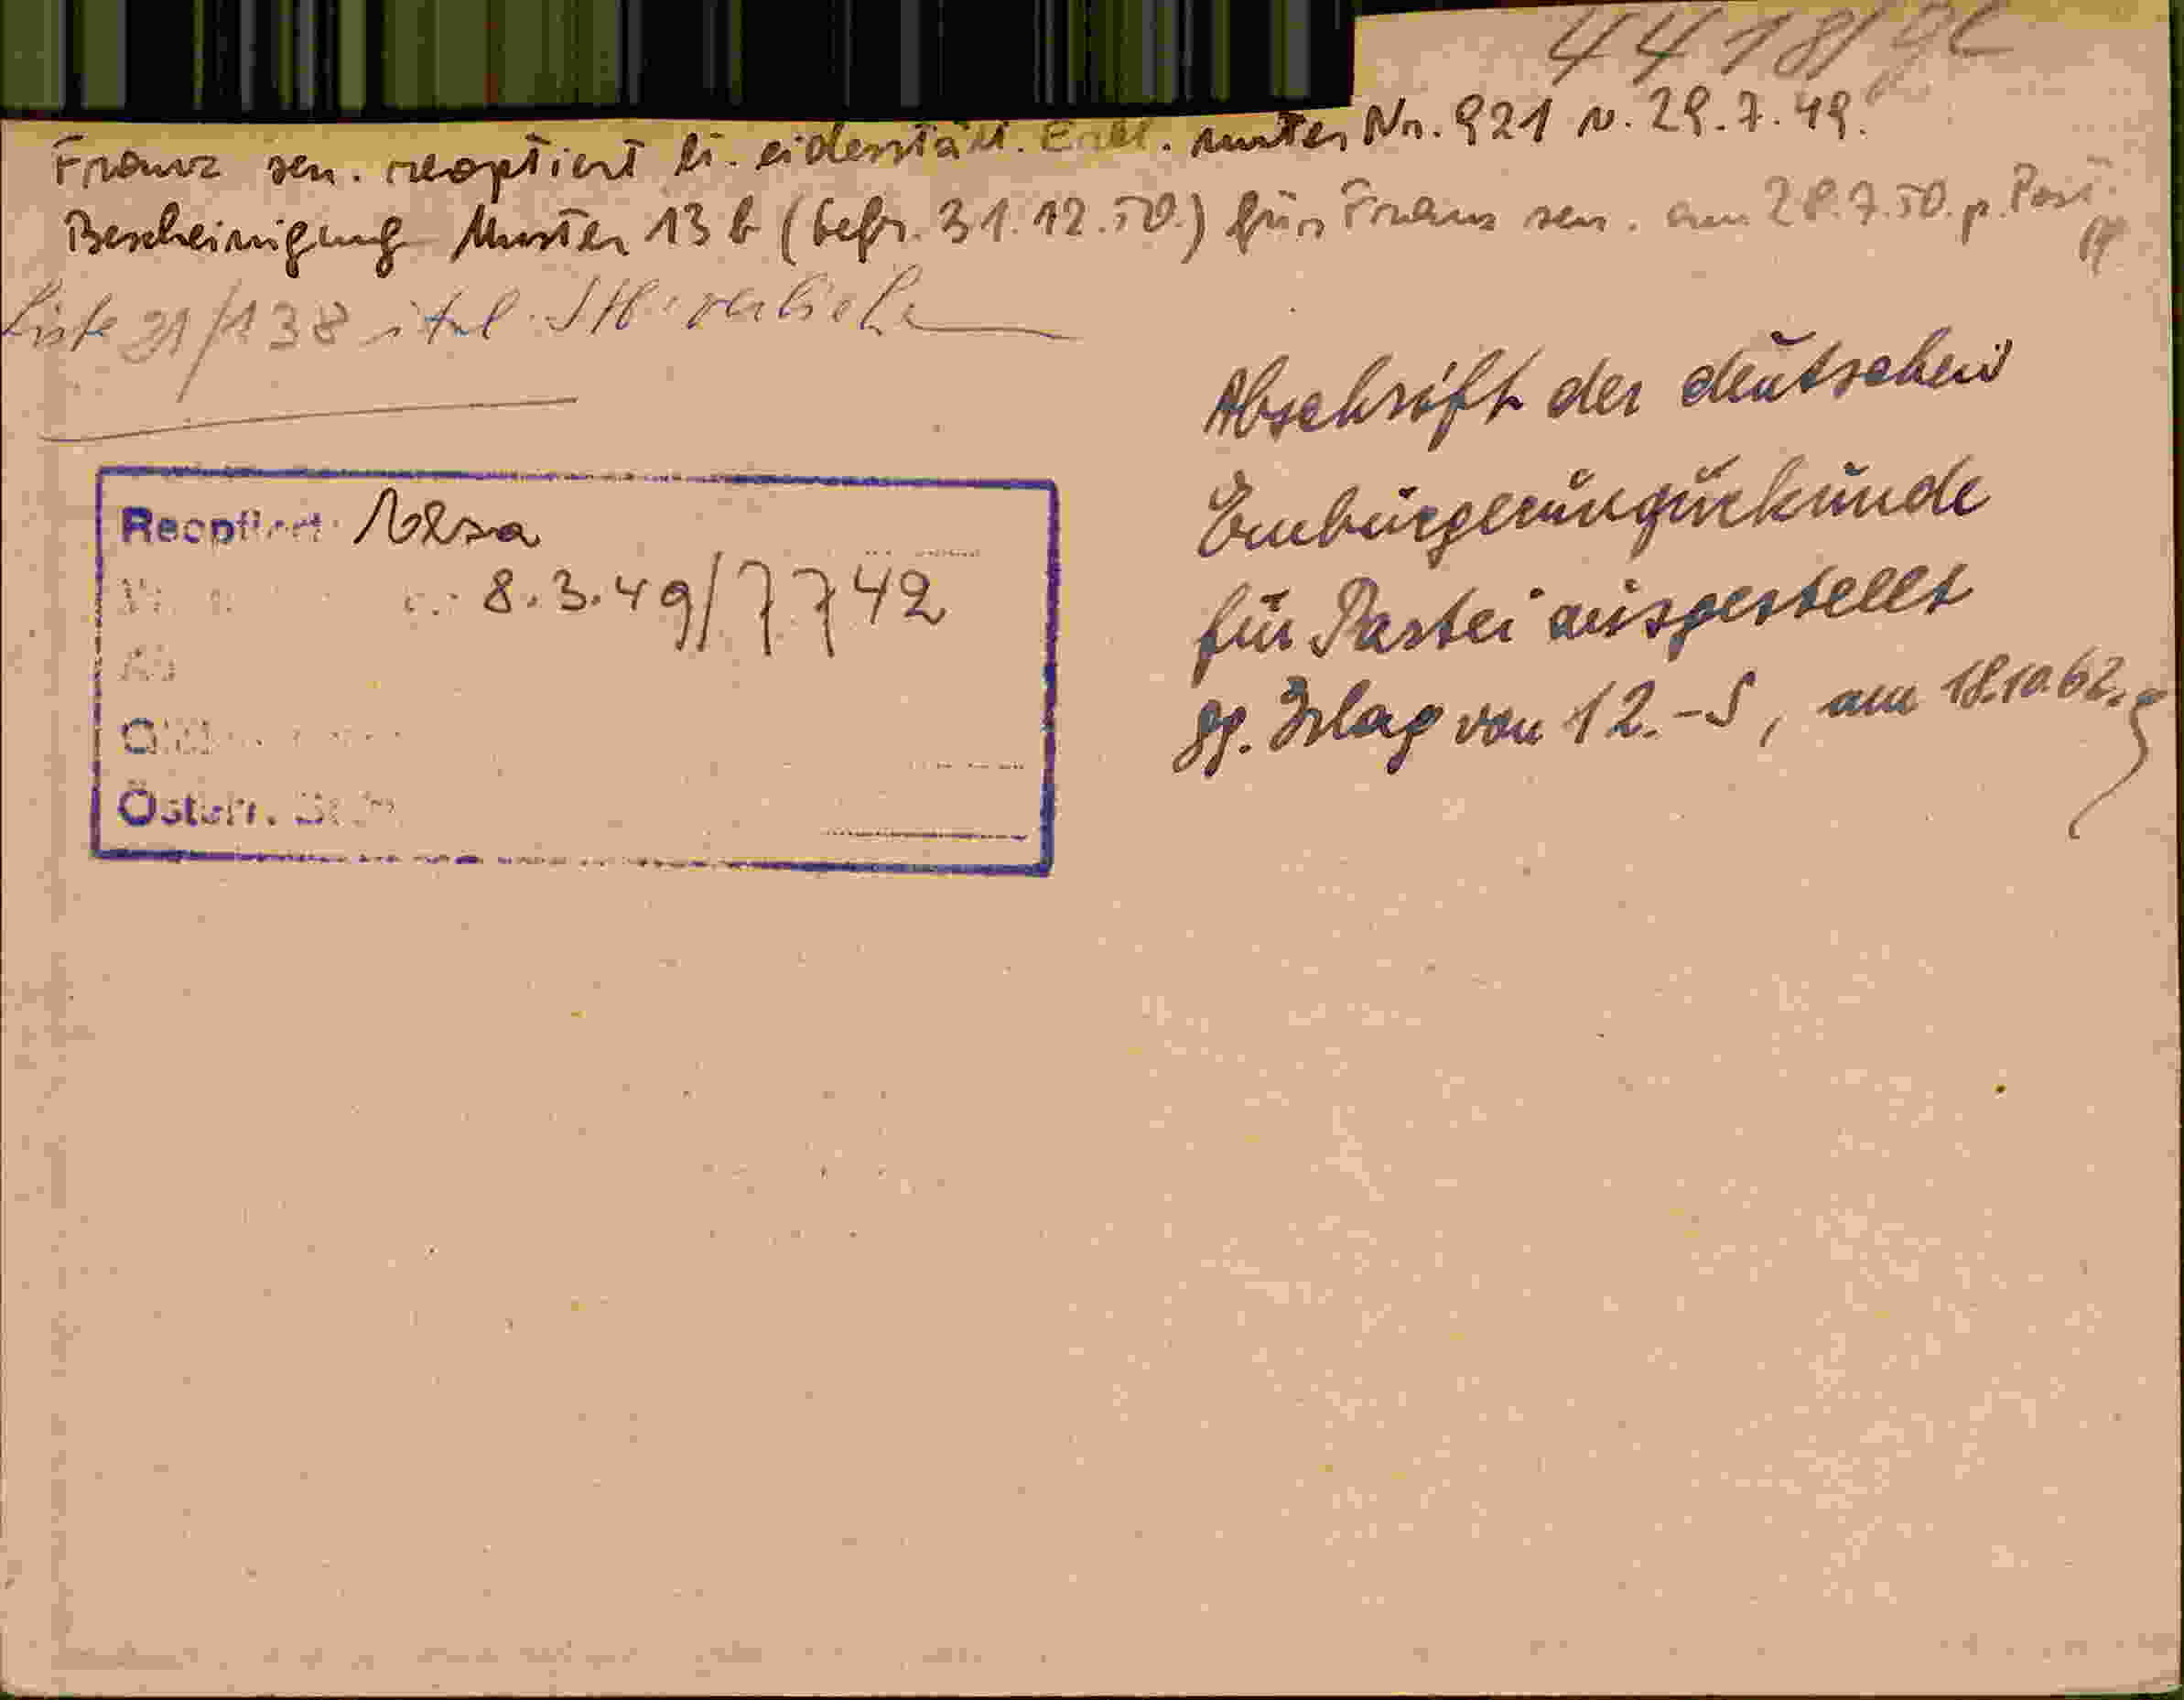 4418/
Franz sen. reoptiert lt. eidesstatt. Erkl. unter Nr. 921 v. 29.7.49.
Bescheinigung Muster 13 b (befr. 31.12.50.) für Franz sen. am 28.7.50. p. Post
Liste 21/138 ital. Stb. verliehen
Abschrift der deutschen
Einbürgerungurkunde
für Partei ausgestellt
gg. Erlag von 12.-S, am 18.10.62.
Reoptiert:
8.3.49/7742
Österr.